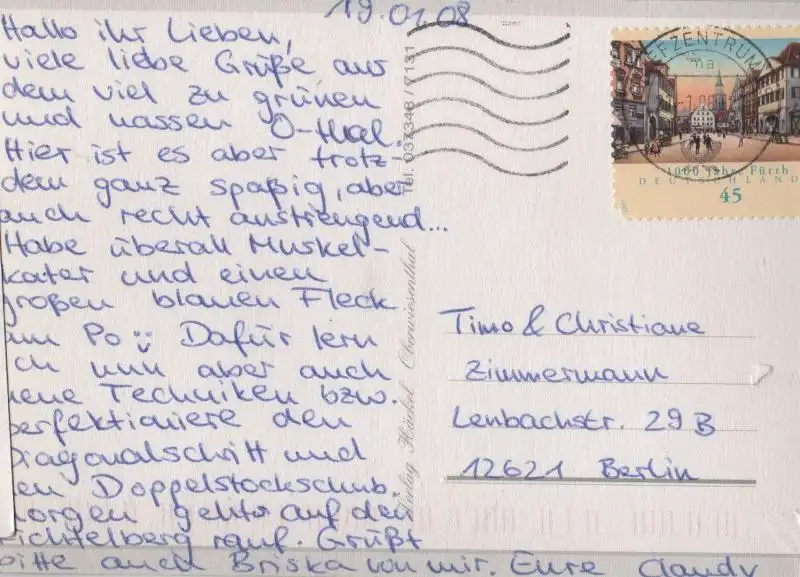 19.01.08
Hallo ihr Lieben,
viele liebe Grüße aus
dem viel zu grünen
und nassen O-thal.
Hier ist es aber trotz-
dem ganz spaßig, aber
auch recht anstrengend...
Habe überall Muskel-
kater und einen
großen blauen Fleck
am Po Dafür lern
ich nun aber auch
neue Techniken bzw.
perfektioniere den
Diagonalschritt und
den Doppelstockschub.
Morgen gehts auf den
Fichtelberg rauf. Grüßt
bitte auch Briska von mir. Eure Claudy
Tel. 037348 / 7131
Verlag Häckel Oberwiesenthal
EFZENTRUM
na
1000 Jahre Fürth
DEUTSCHLAND
45
Timo & Christiane
Zimmermann
Lenbachstr. 29B
12621 Berlin